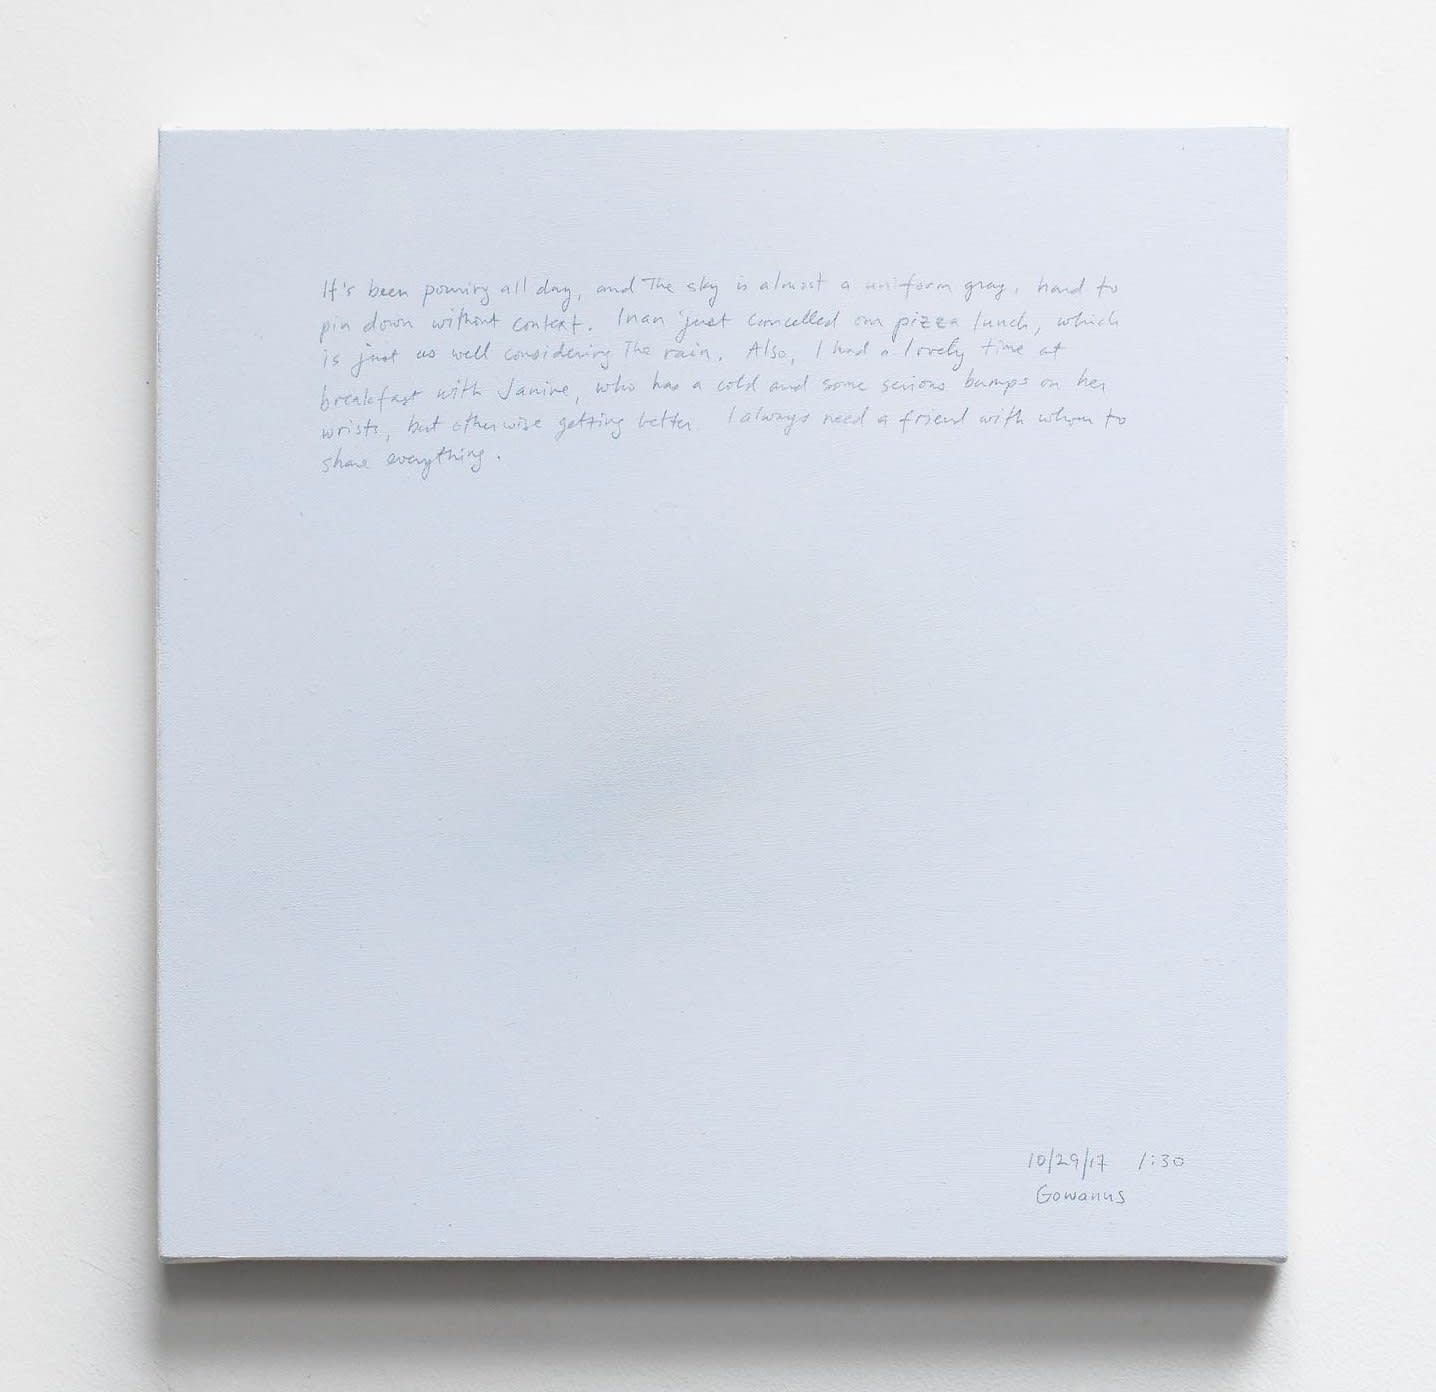 It's been pouring all day, and The sky is almost a uniform gray, hard to
pin down without context. Inan just cancelled our pizza lunch, which
is just as well considering The rain. Also, I had a lovely time at
breakfast with Janine, who has a cold and some serious bumps on her
wrists, but otherwise getting better. I always need a friend with whom to
share everything.
10/29/17 1:30
Gowanus